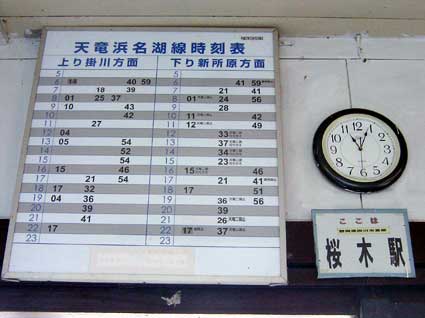 天竜浜名湖線時刻表
上り掛川方面 下り新所原方面
5 5
6 40 59 6 41 59
7 18 39 7 21 41
8 01 25 37 8 01 24 56
9 10 43 9 28
10 42 10 11 42
11 27 11 12 49
12 04 12 33
13 05 54 13 37 47
14 52 14 34
15 54 15 23
16 15 46 16 15 46
17 21 54 17 41
18 17 32 18 17 51
19 04 36 19 36 56
20 39 20 39
21 41 21 26 37
22 17 22 17 37
23 23
ここは
桜木駅